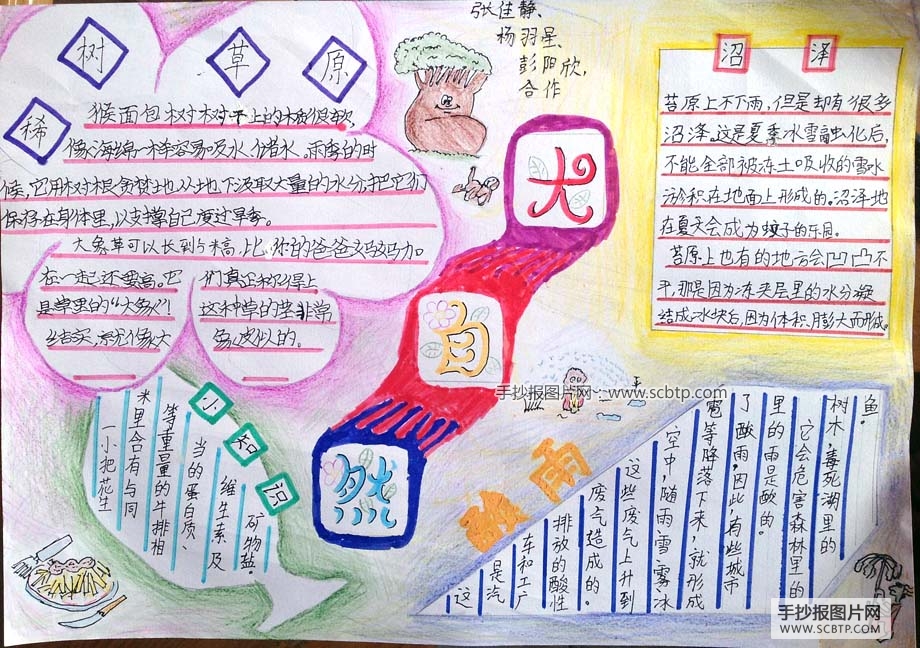 张佳静、
杨羽星、
彭阳欣,
合作
稀树草原
猴面包树树干上的木质很软,
像海绵一样容易吸水、储水。雨季的时
候,它用树根贪婪地从地下汲取大量的水分,把它们
保存在身体里,以支撑自己度过旱季。
大象草可以长到与米高,比你的爸爸妈妈加
在一起还要高。它
是草里的“大象”!
结实,就像大
们真正称得上
这种草的茎非常
象皮似的。
大
自
然
沼泽
苔原上不下雨,但是却有很多
沼泽。这是夏季冰雪融化后,
不能全部被冻土吸收的雪水
淤积在地面上形成的。沼泽地
在夏天会成为蚊子的乐园。
苔原上也有的地方会凹凸不
平,那是因为冻夹层里的水分凝
结成冰块后,因为体积膨大而形成。
手抄报图片网:www.scbtp.com
小知识
一小把花生
米里含有与同
等重量的牛排相
当的蛋白质、
维生素及
矿物盐。
酸雨
这
是汽
车和工厂
排放的酸性
废气造成的。
这些废气上升到
空中,随雨雪雾冰
雹等降落下来,就形成
了酸雨,因此,有些城市
里的雨是酸的。
它会危害森林里的
树木,毒死湖里的
鱼。
手抄报图片网
WWW.SCBTP.COM